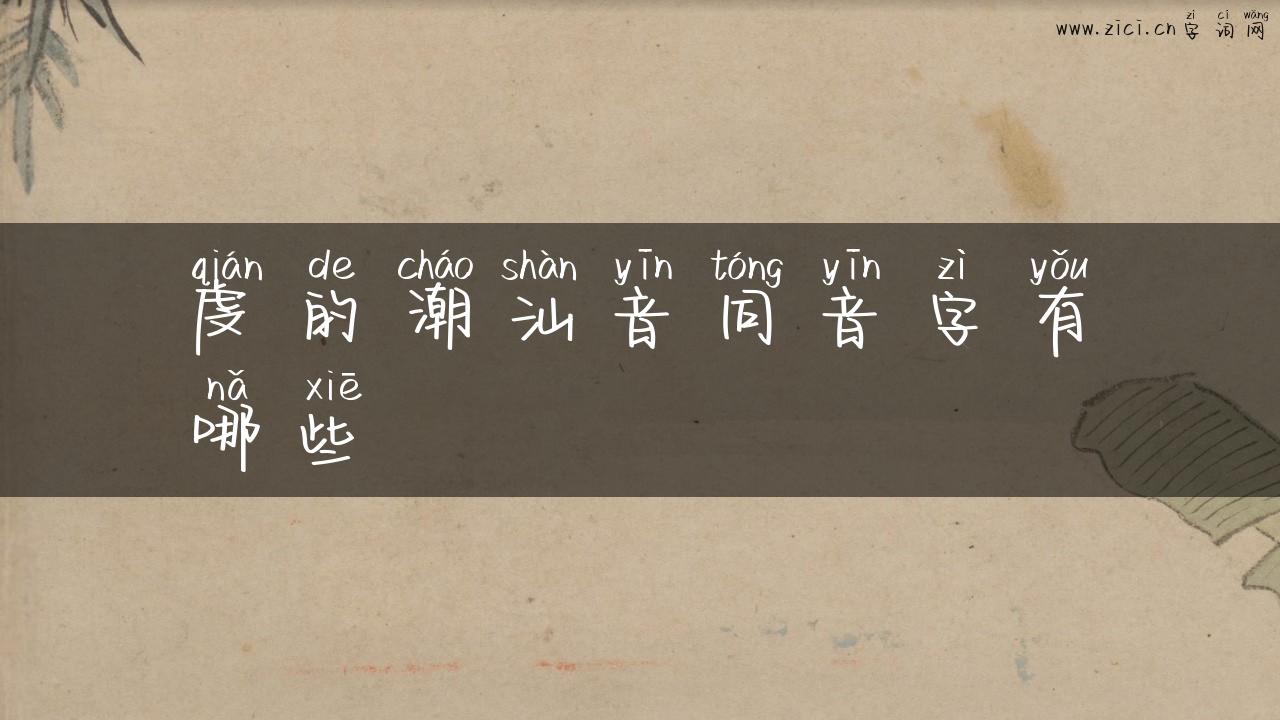 zì cí wǎng
www.zici.cn 字词网
qián de cháo shàn yīn tóng yīn zì yǒu
虔的潮汕音同音字有
nǎ xiē
哪些